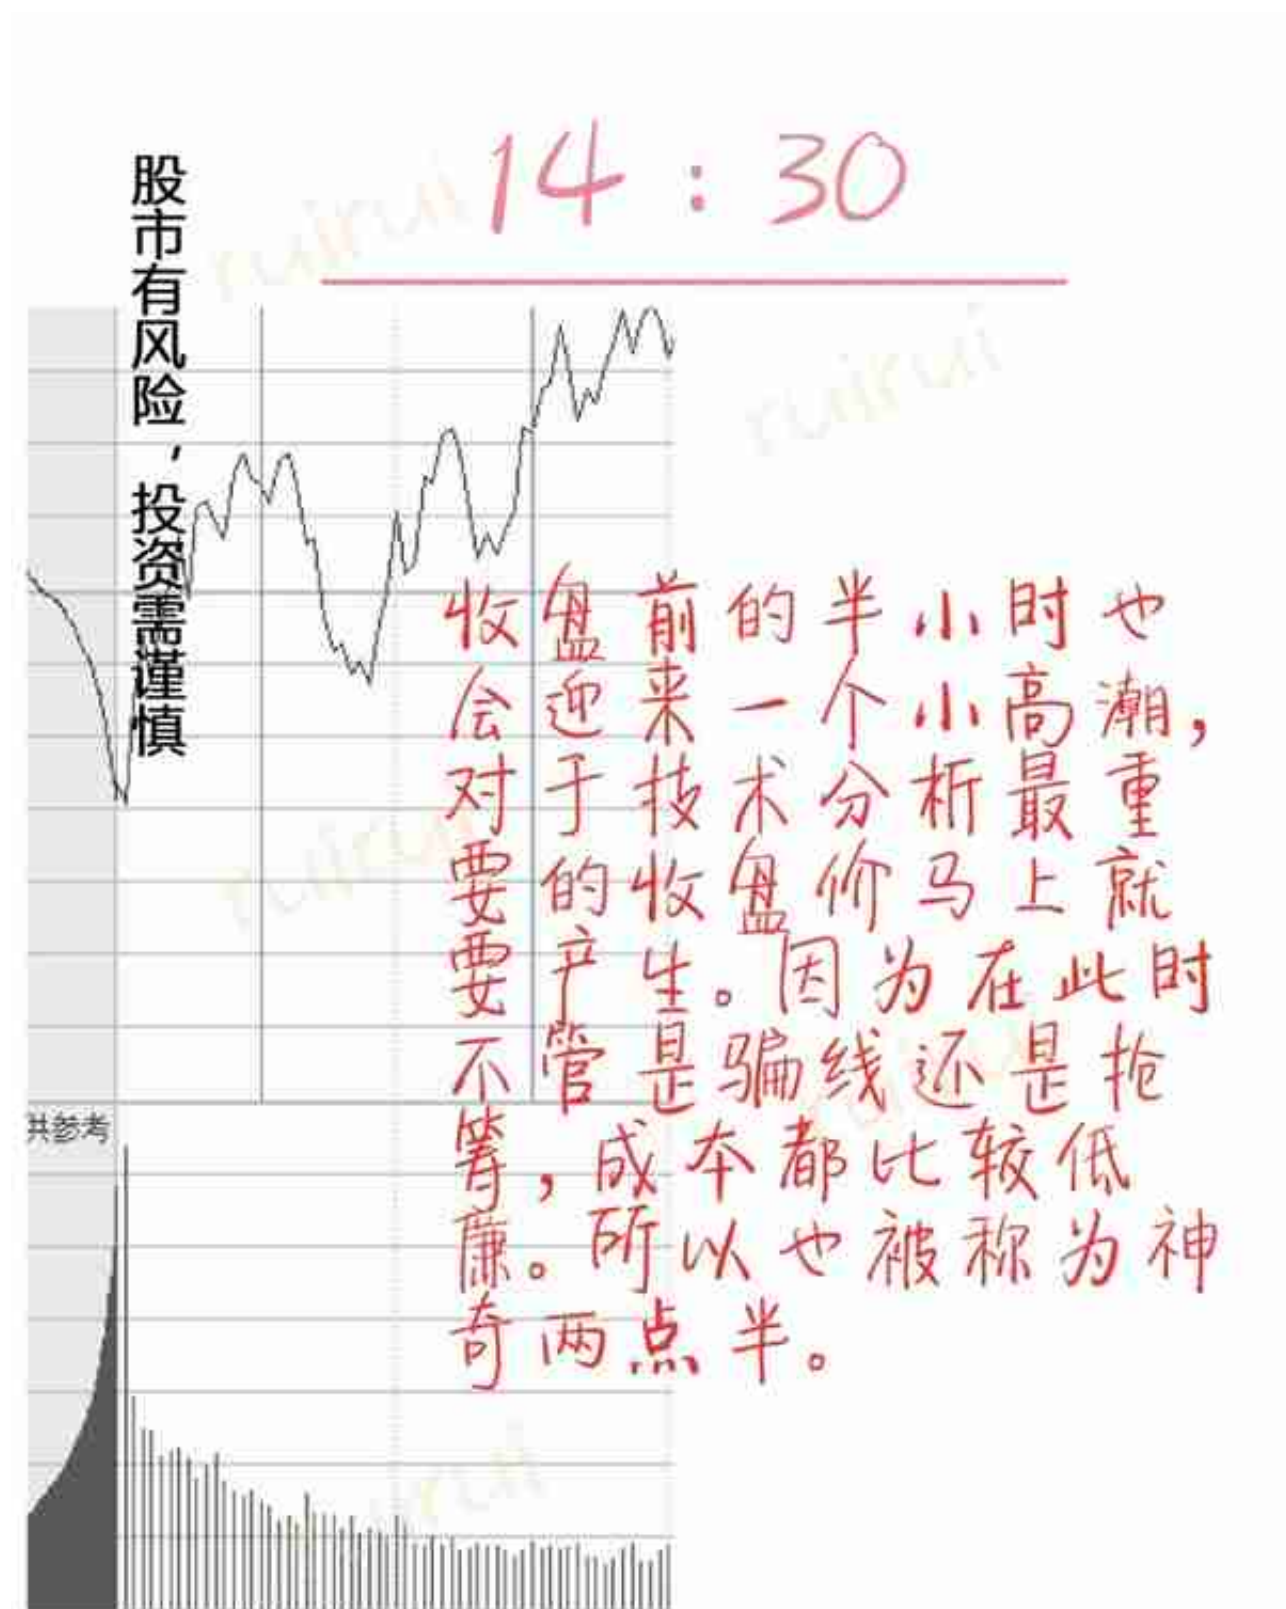 14:30
股市有风险，投资需谨慎
收盘前的半小时也
会迎来一个小高潮，
对于技术分析最重
要的收盘价马上就
要产生。因为在此时
不管是骗线还是抢
筹，成本都比较低
廉。所以也被称为神
奇两点半。
供参考
ruirui
ruirui
ruirui